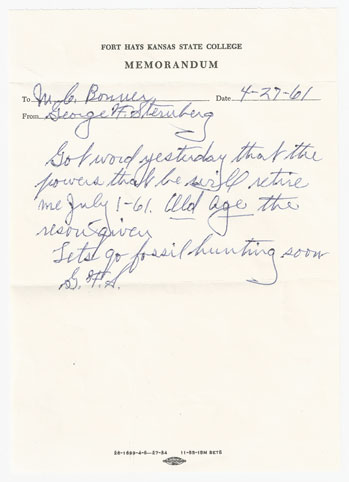 FORT HAYS KANSAS STATE COLLEGE
MEMORANDUM
To M. C. Bonner Date 4-27-61
From George F. Sternberg
Got word yesterday that the
powers that be will retire
me July 1-61. Old Age the
reson given
Lets go fossil hunting soon
G. F. S.
28-1699-A-5-27-54 11-59-15M SETS